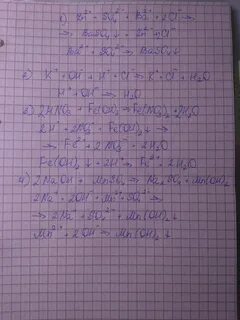 1) Zn²⁺ + SO₄²⁻ + Ba²⁺ + 2Cl⁻ →
→ BaSO₄↓ + Zn²⁺ + 2Cl⁻
Ba²⁺ + SO₄²⁻ → BaSO₄↓
K⁺ + OH⁻ + H⁺ + Cl⁻ → K⁺ + Cl⁻ + H₂O
H⁺ + OH⁻ → H₂O
2HNO₃ + Fe(OH)₂ → Fe(NO₃)₂ + 2H₂O
2H⁺ + 2NO₃⁻ + Fe(OH)₂ →
→ Fe²⁺ + 2NO₃⁻ + 2H₂O
Fe(OH)₂↓ + 2H⁺ → Fe²⁺ + 2H₂O
4) 2NaOH + MnSO₄ → Na₂SO₄ + Mn(OH)₂
2Na⁺ + 2OH⁻ + Mn²⁺ + SO₄²⁻ →
→ 2Na⁺ + SO₄²⁻ + Mn(OH)₂↓
Mn²⁺ + 2OH⁻ → Mn(OH)₂↓